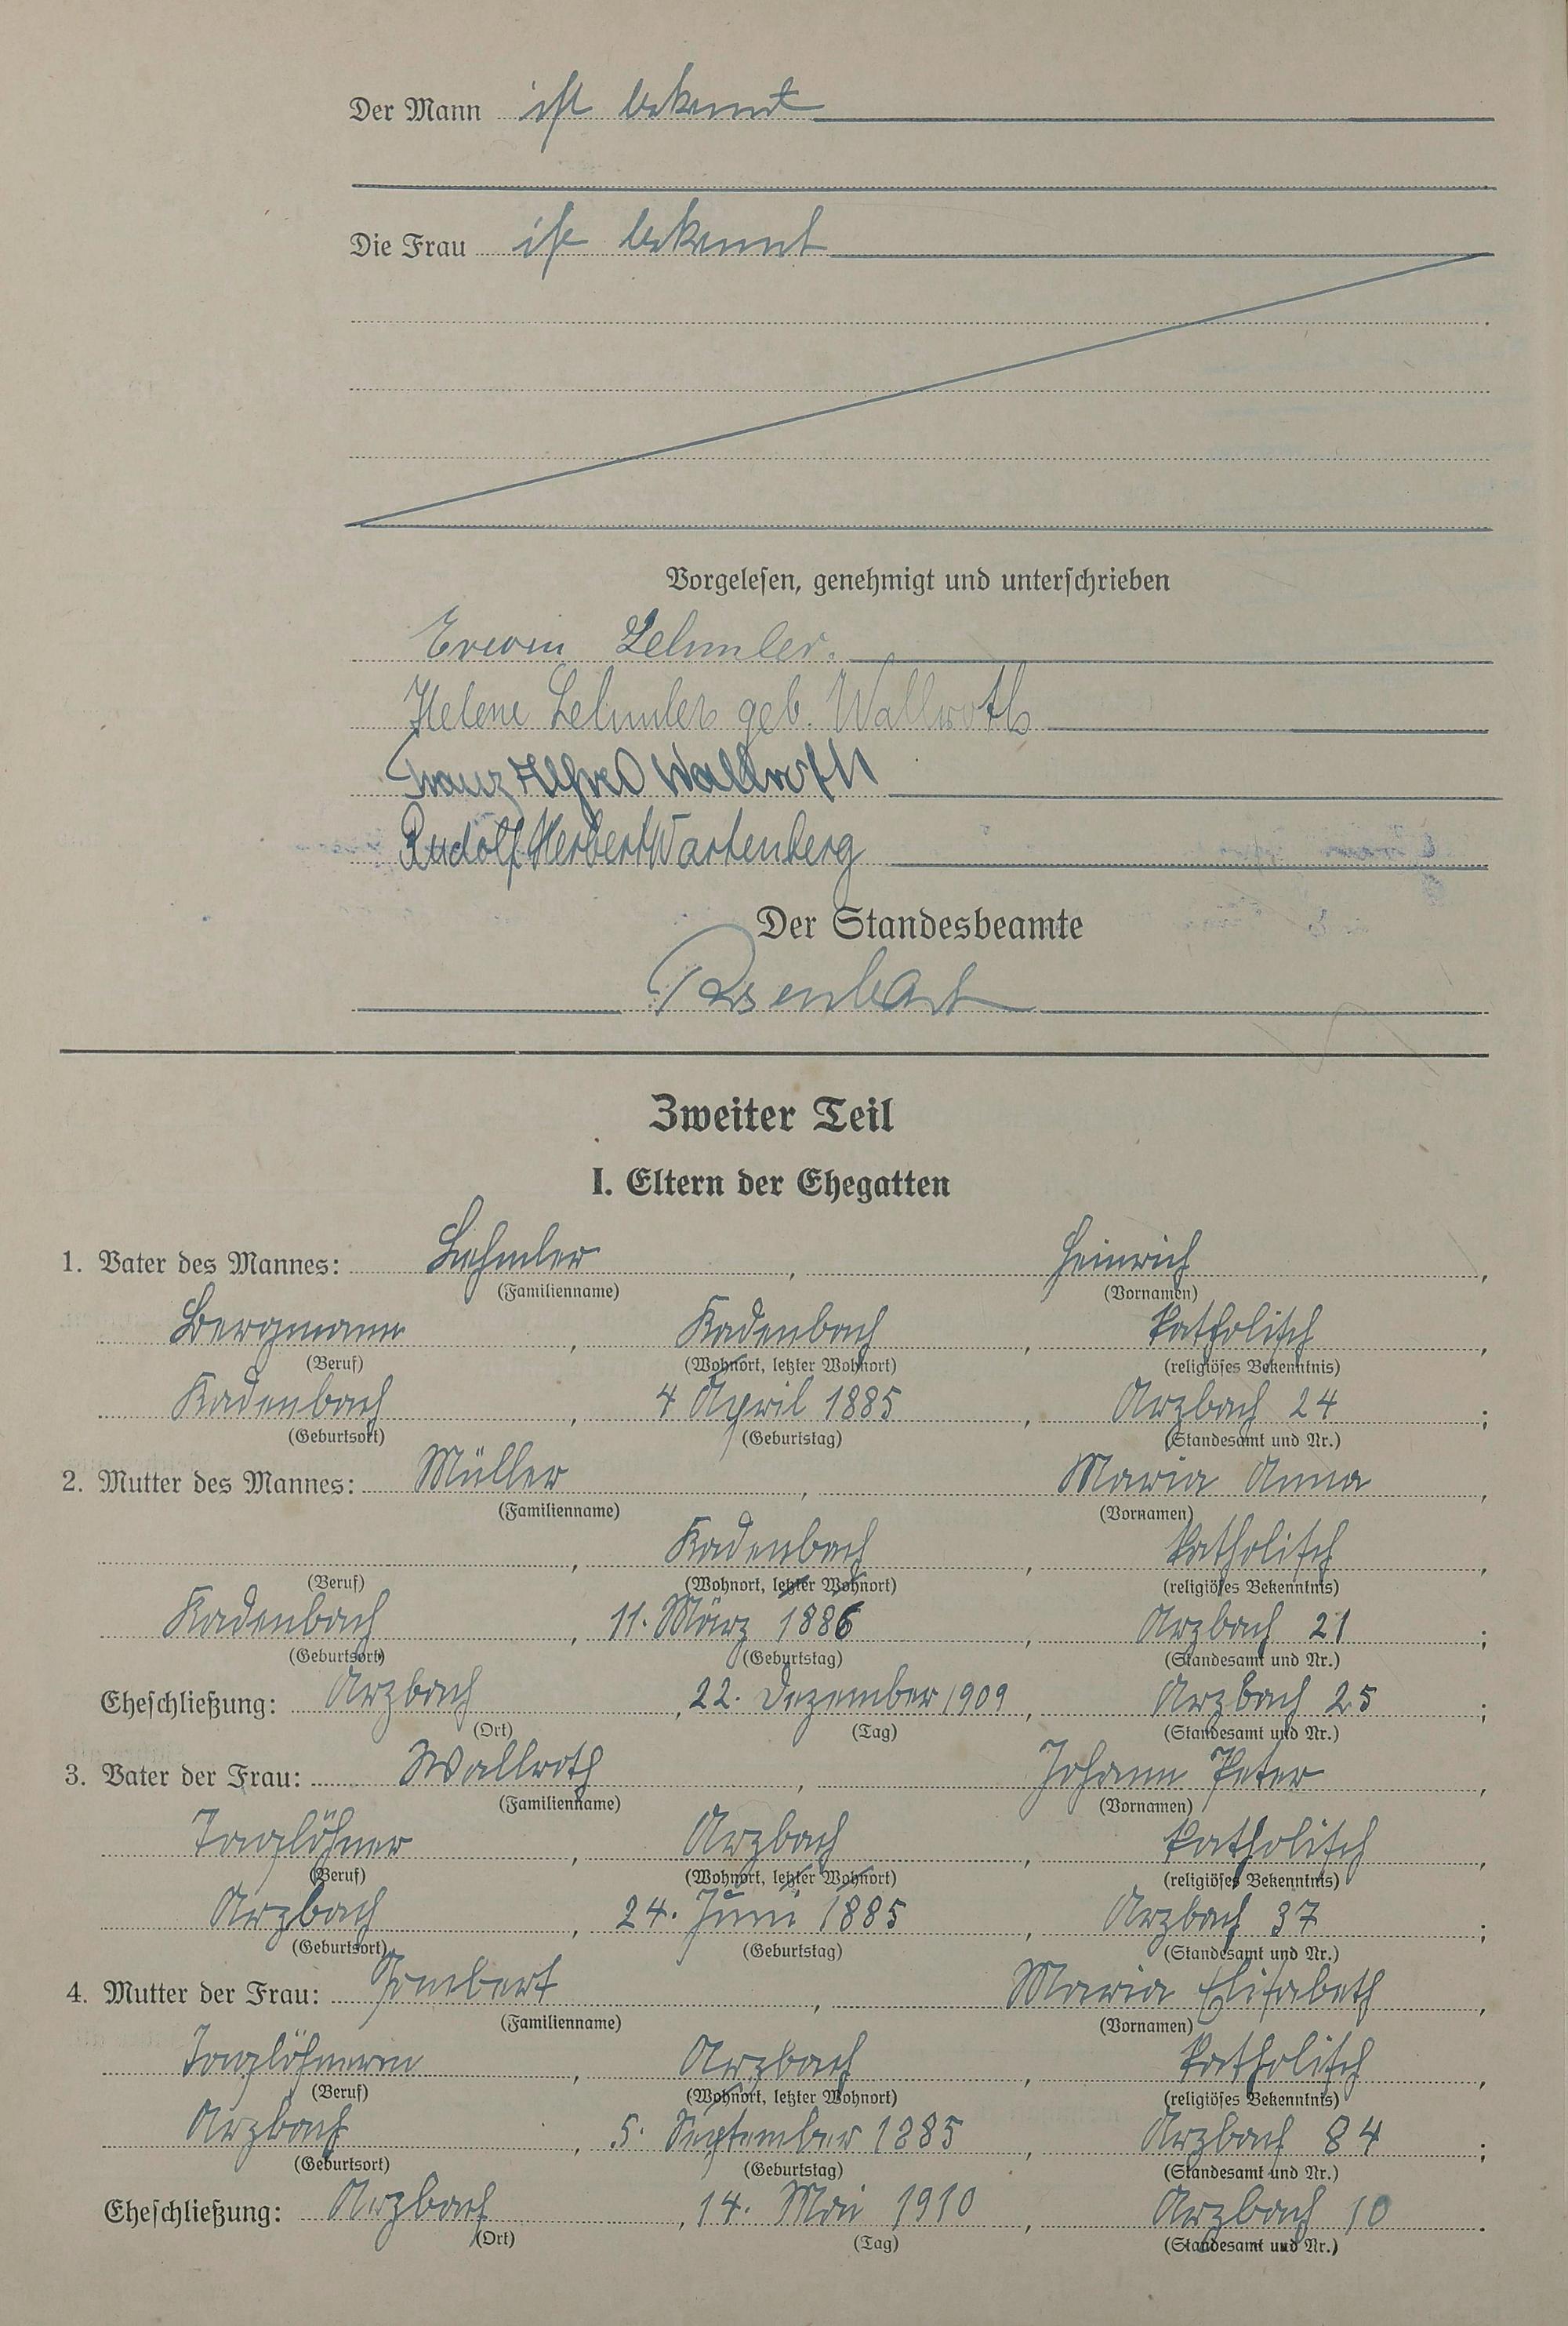 Der Mann ist bekannt
Die Frau ist bekannt
Vorgelesen, genehmigt und unterschrieben
Erwin Lehmler.
Helene Lehmler geb. Wallroth
Franz Alfred Wallroth
Rudolf Herbert Wartenberg
Der Standesbeamte
Zweiter Teil
I. Eltern der Ehegatten
1. Vater des Mannes: Lehmler, Heinrich,
(Familienname) (Vornamen)
Bergmann, Kadenbach, katholisch,
(Beruf) (Wohnort, letzter Wohnort) (religiöses Bekenntnis)
Kadenbach, 4 April 1885, Arzbach 24;
(Geburtsort) (Geburtstag) (Standesamt und Nr.)
2. Mutter des Mannes: Müller, Maria Anna,
(Familienname) (Vornamen)
, Kadenbach, katholisch,
(Beruf) (Wohnort, letzter Wohnort) (religiöses Bekenntnis)
Kadenbach, 11. März 1886, Arzbach 21;
(Geburtsort) (Geburtstag) (Standesamt und Nr.)
Eheschließung: Arzbach, 22. Dezember 1909, Arzbach 25;
(Ort) (Tag) (Standesamt und Nr.)
3. Vater der Frau: Wallroth, Johann Peter,
(Familienname) (Vornamen)
Taglöhner, Arzbach, katholisch,
(Beruf) (Wohnort, letzter Wohnort) (religiöses Bekenntnis)
Arzbach, 24. Juni 1885, Arzbach 37;
(Geburtsort) (Geburtstag) (Standesamt und Nr.)
4. Mutter der Frau: Maria Elisabeth,
(Familienname) (Vornamen)
Taglöhnerin, Arzbach, katholisch,
(Beruf) (Wohnort, letzter Wohnort) (religiöses Bekenntnis)
Arzbach, 5. September 1885, Arzbach 84;
(Geburtsort) (Geburtstag) (Standesamt und Nr.)
Eheschließung: Arzbach, 14. Mai 1910, Arzbach 10.
(Ort) (Tag) (Standesamt und Nr.)